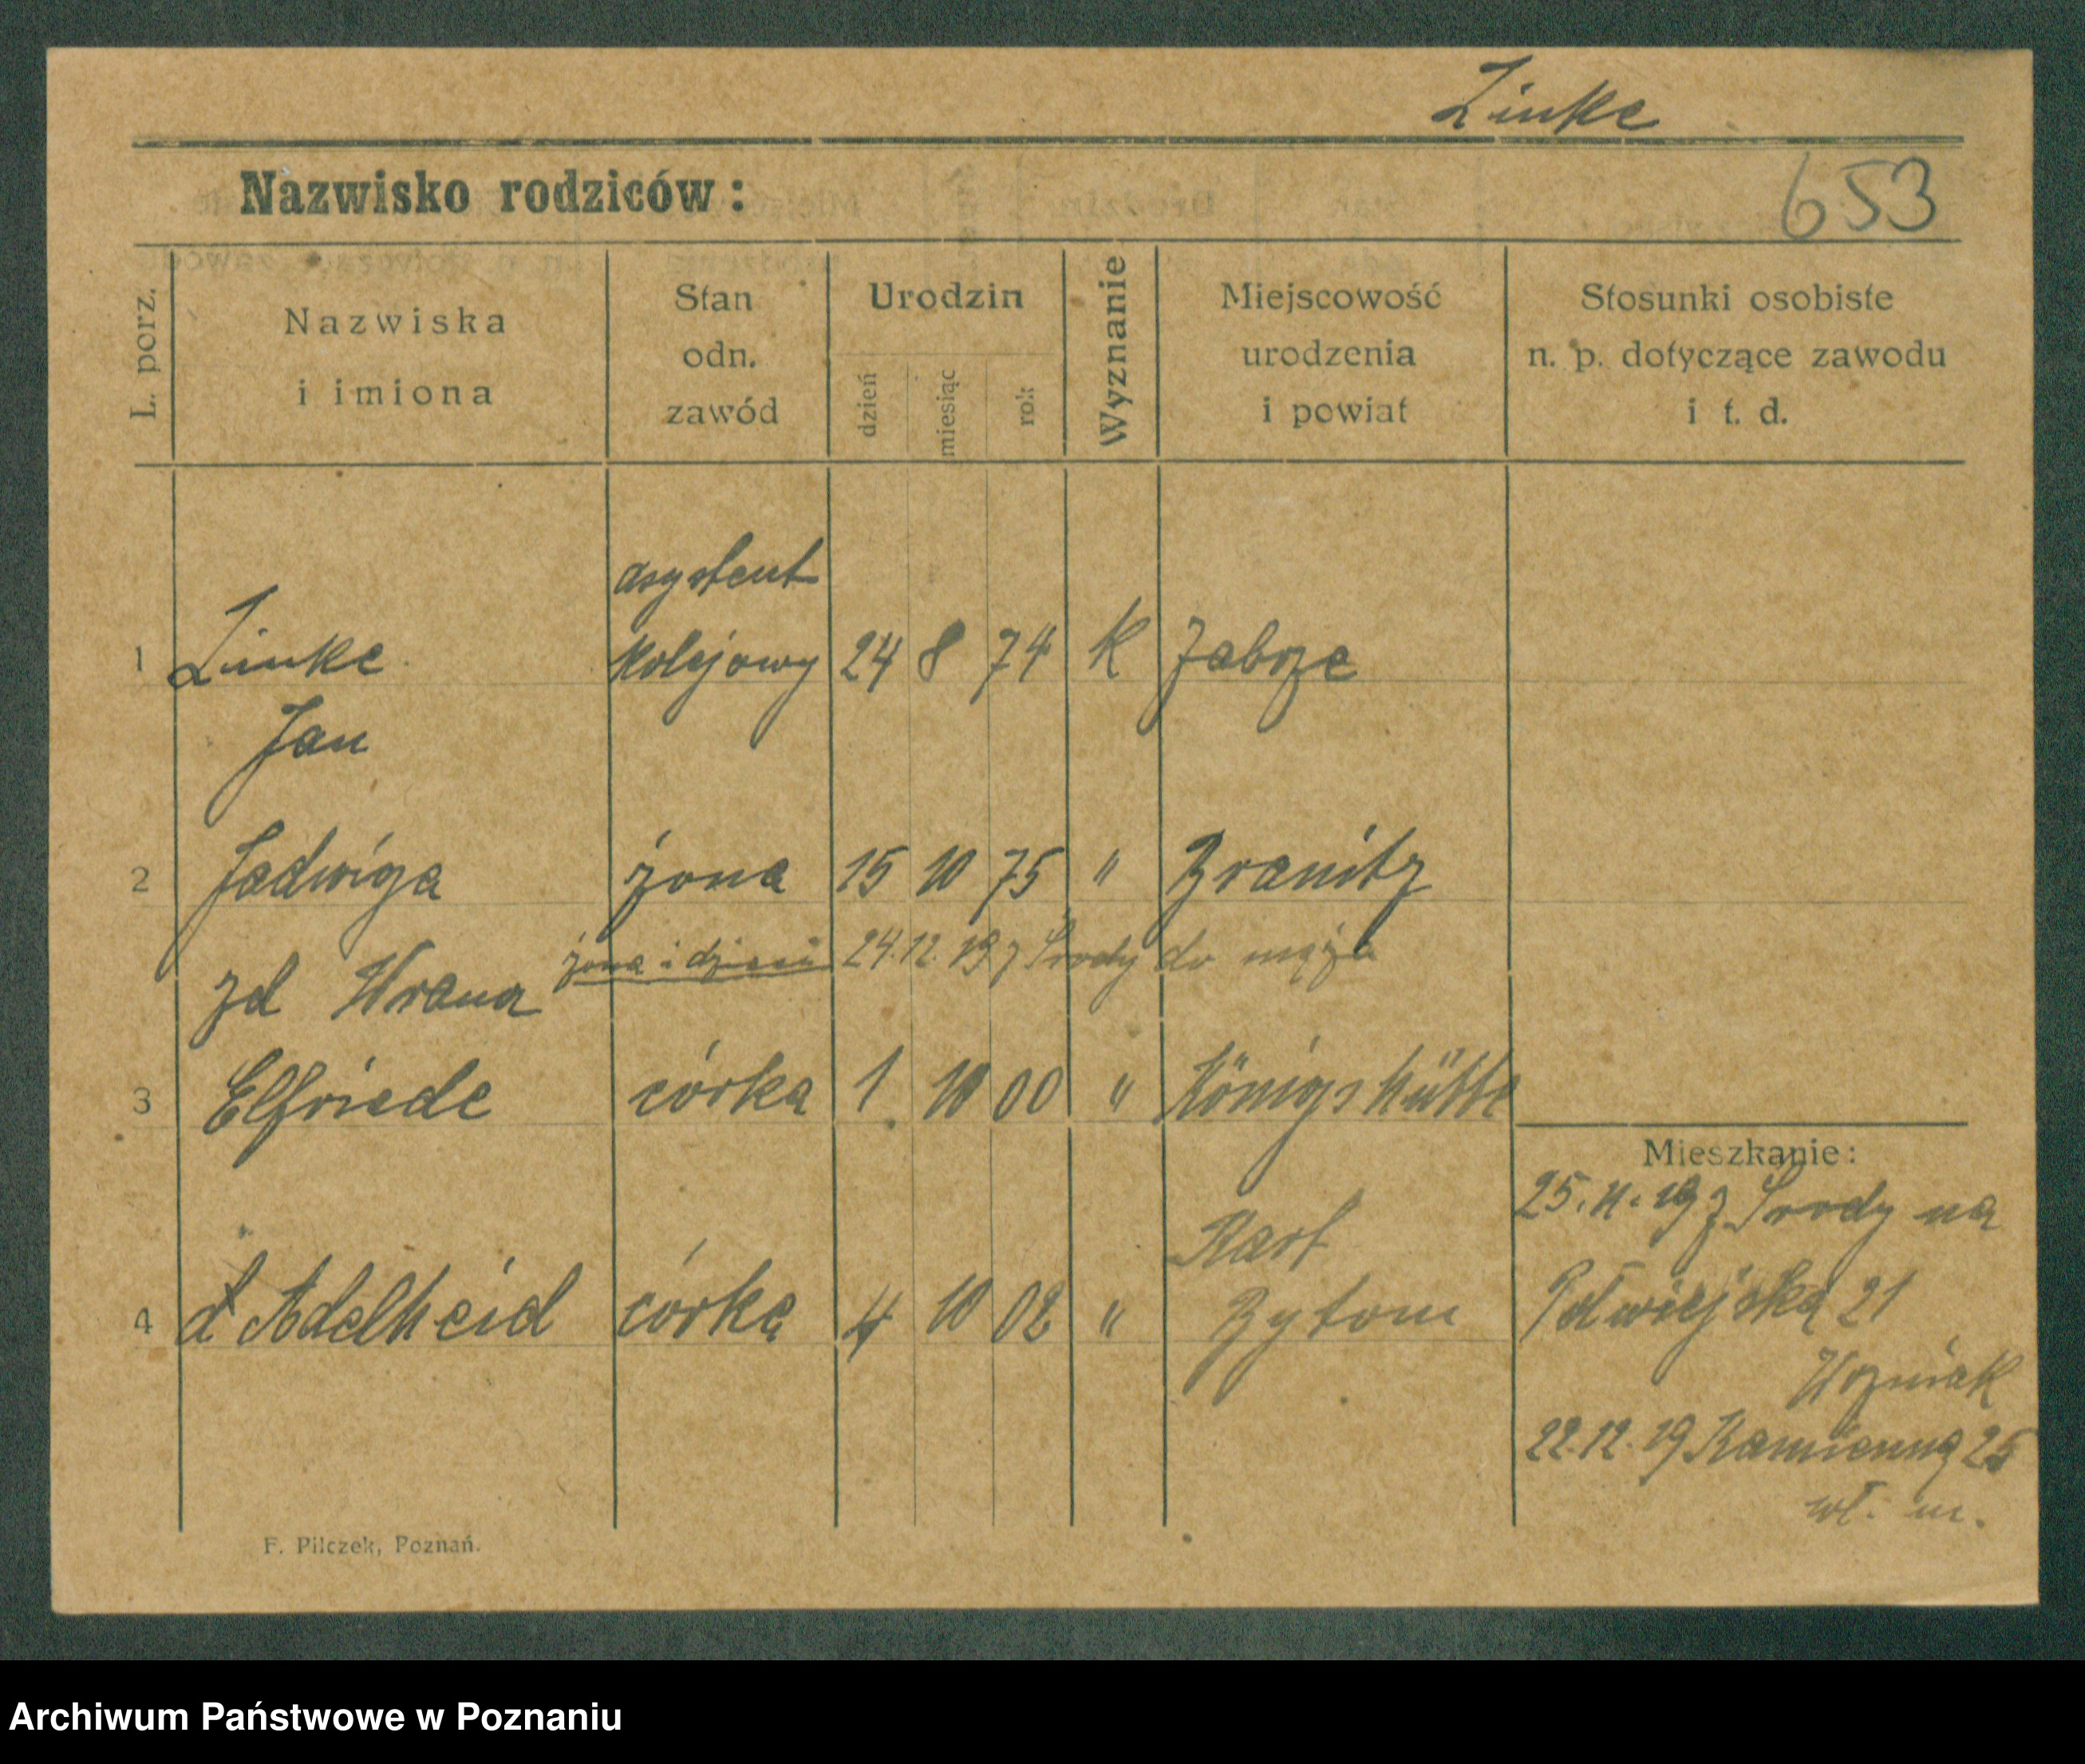 Linke
Nazwisko rodziców:
653
L. porz.
Nazwiska
i imiona
Stan
odn.
zawód
Urodzin
dzień
miesiąc
rok
Wyznanie
Miejscowość
urodzenia
i powiat
Stosunki osobiste
n. p. dotyczące zawodu
i t. d.
asystent
1 Linke kolejowy 24 8 74 K Zabrze
Jan
2 Jadwiga żona 15 10 75 " Branitz
żona i dzieci 24.12.19 z Środy do męża
zd Wrana
3 Elfriede córka 1 10 00 " Königshütte
Mieszkanie:
25.11.19 z Środy na
4 Adelheid córka 4 10 02 " Bytom
Półwiejska 21
Woźniak
22.12.19 Kamienna 25
wł. m.
F. Pilczek, Poznań.
Archiwum Państwowe w Poznaniu